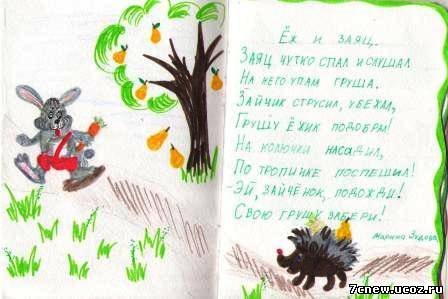 Ёж и заяц.
Заяц чутко спал и слушал
На него упала груша.
Зайчик струсил, убежал,
Грушу ёжик подобрал!
На колючки насадил,
По тропинке поспешил!
-Эй, зайчёнок, подожди!
Свою грушу забери!
Марина Зудова
7cnew.ucoz.ru